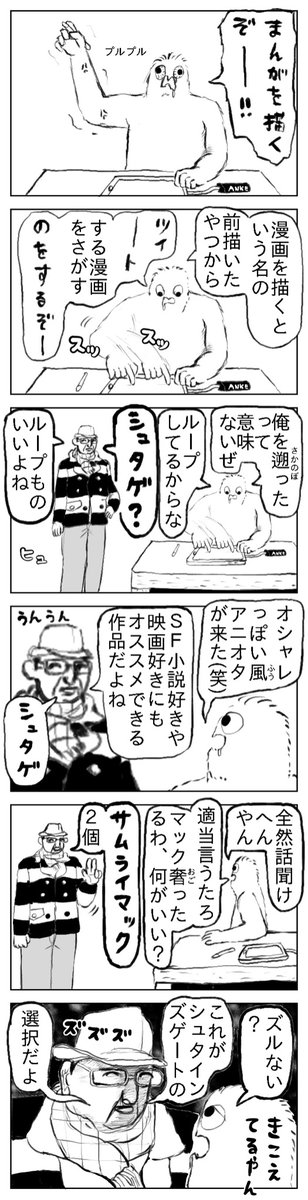 まんがを描く
ぞーー!!
プルプル
ANKE
漫画を描くと
いう名の
前描いた
やつから
ツイ
ート
する漫画
をさがす
のをするぞー
スッ
スッ
ANKE
俺を遡った
さかのぼ
って
意味
ないぜ
ループ
してるからな
シュタゲ?
ループもの
いいよね
ヒュ
オシャレ
っぽい風
ふう
アニオタ
が来た(笑)
SF小説好きや
映画好きにも
オススメできる
作品だよね
うんうん
シュタゲ
全然話聞け
へん
やん
適当言うたろ
マック奢った
おご
るわ、何がいい?
サムライマック
2個
ズルない
?
これが
シュタイン
ズゲートの
選択だよ
ズズズ
きこえ
てるやん